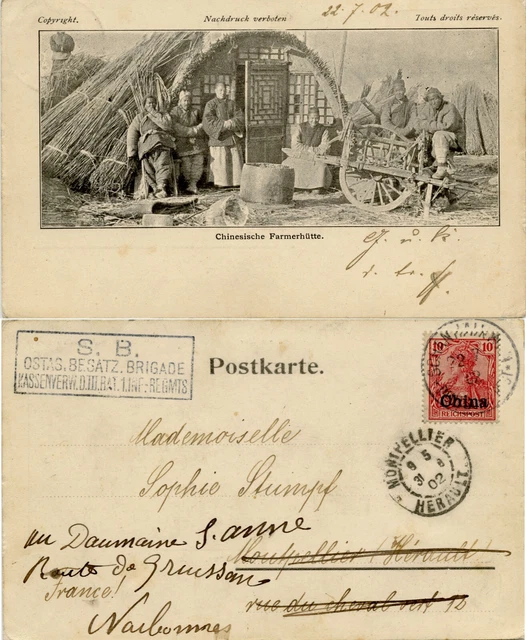 Copyright.
Nachdruck verboten
22.7.02.
Touts droits réservés.
Chinesische Farmerhütte.
G. u. K.
S. B.
OSTAS. BESATZ. BRIGADE
KASSENVERW. D. III. BAT. 1. INF. REGMTS
Postkarte.
10 10
China
REICHSPOST
MONTPELLIER
5
31 8
02
HERAULT
Mademoiselle
Sophie Stumpf
au Daumaine S. anne
Route de Gruissan
Montpellier (Hérault)
France
rue du cheval vert 12
Narbonne